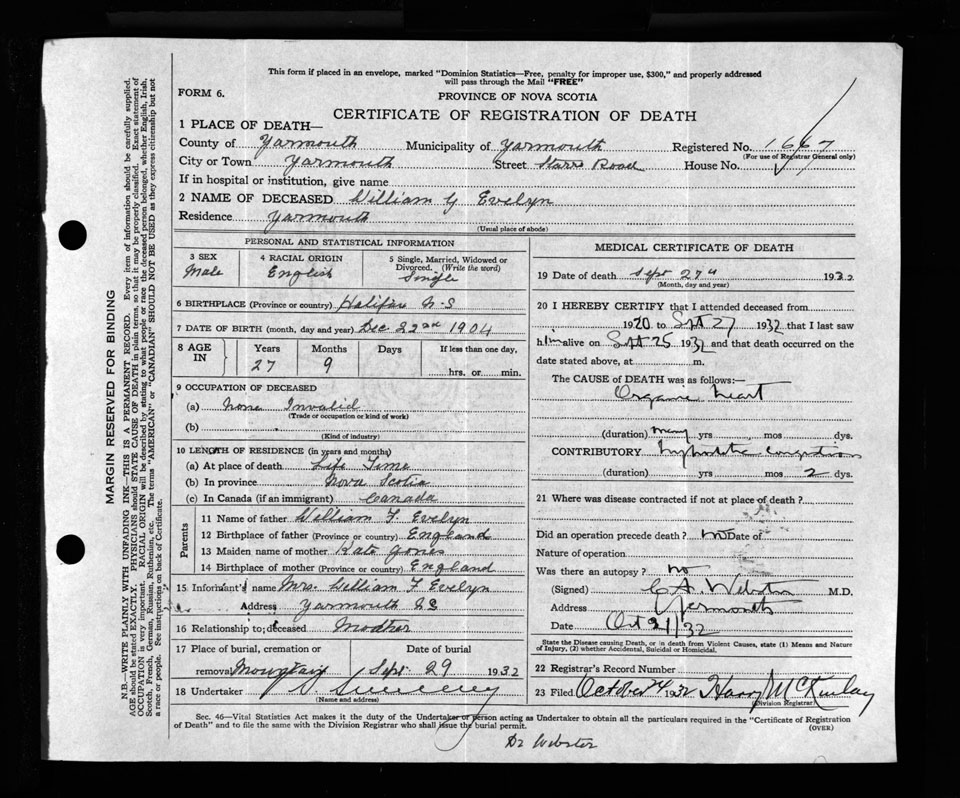 This form if placed in an envelope, marked "Dominion Statistics—Free, penalty for improper use, $300," and properly addressed
will pass through the Mail "FREE"
FORM 6.
PROVINCE OF NOVA SCOTIA
CERTIFICATE OF REGISTRATION OF DEATH
1 PLACE OF DEATH—
County of Yarmouth Municipality of Yarmouth Registered No. 1667
(For use of Registrar General only)
City or Town Yarmouth Street Starrs Road House No.
If in hospital or institution, give name
2 NAME OF DECEASED William G Evelyn
Residence Yarmouth
(Usual place of abode)
PERSONAL AND STATISTICAL INFORMATION
3 SEX Male
4 RACIAL ORIGIN English
5 Single, Married, Widowed or Divorced. (Write the word) Single
6 BIRTHPLACE (Province or country) Halifax N-S
7 DATE OF BIRTH (month, day and year) Dec 22nd 1904
8 AGE IN Years Months Days If less than one day,
27 9 hrs. or min.
9 OCCUPATION OF DECEASED
(a) None Invalid
(Trade or occupation or kind of work)
(b)
(Kind of industry)
10 LENGTH OF RESIDENCE (in years and months)
(a) At place of death Life Time
(b) In province Nova Scotia
(c) In Canada (if an immigrant) Canada
Parents
11 Name of father William F. Evelyn
12 Birthplace of father (Province or country) England
13 Maiden name of mother Kate Jones
14 Birthplace of mother (Province or country) England
15 Informant's name Mrs. William F Evelyn
Address Yarmouth NS
16 Relationship to deceased Mother
17 Place of burial, cremation or removal Mountain
Date of burial Sept 29 1932
18 Undertaker Sweeney
(Name and address)
MEDICAL CERTIFICATE OF DEATH
19 Date of death Sept 27th 1932
(Month, day and year)
20 I HEREBY CERTIFY that I attended deceased from
1920 to Sept 27 1932 that I last saw
him alive on Sept 25 1932 and that death occurred on the
date stated above, at m.
The CAUSE of DEATH was as follows:—
Organic heart
(duration) many yrs mos dys.
CONTRIBUTORY Hypostatic congestion
(duration) yrs mos 2 dys.
21 Where was disease contracted if not at place of death?
Did an operation precede death? no Date of
Nature of operation
Was there an autopsy? no
(Signed) C A Webster M.D.
Address Yarmouth
Date Oct 21/32
State the Disease causing Death, or in death from Violent Causes, state (1) Means and Nature of Injury, (2) whether Accidental, Suicidal or Homicidal.
22 Registrar's Record Number
23 Filed October 24 1932 Harry McKinlay
(Division Registrar)
Sec. 46—Vital Statistics Act makes it the duty of the Undertaker or person acting as Undertaker to obtain all the particulars required in the "Certificate of Registration
of Death" and to file the same with the Division Registrar who shall issue the burial permit.
(OVER)
Dr Webster
MARGIN RESERVED FOR BINDING
N.B.—WRITE PLAINLY WITH UNFADING INK—THIS IS A PERMANENT RECORD. Every item of information should be carefully supplied.
AGE should be stated EXACTLY. PHYSICIANS should STATE CAUSE OF DEATH in plain terms, so that it may be properly classified. Exact statement of
OCCUPATION is very important. RACIAL ORIGIN will be described by stating to what people or race the deceased person belonged, whether English, Irish,
Scotch, French, German, Russian, Ruthenian, etc. The terms "AMERICAN" or "CANADIAN" SHOULD NOT BE USED as they express citizenship but not
a race or people. See instructions on back of Certificate.